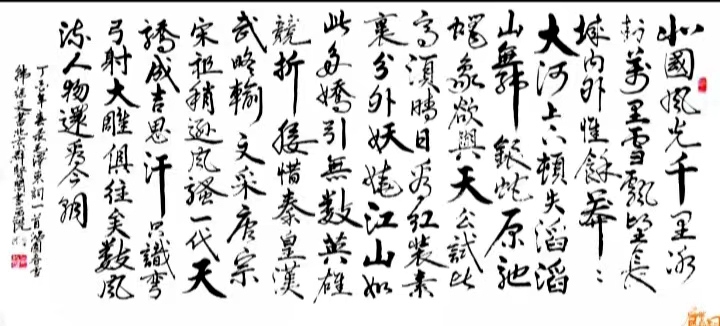 北國風光千里冰
封萬里雪飄望長
城內外惟餘莽〻
大河上下頓失滔滔
山舞銀蛇原馳
蠟象欲與天公試比
高須晴日看紅裝素
裹分外妖嬈江山如
此多嬌引無數英雄
競折腰惜秦皇漢
武略輸文采唐宗
宋祖稍遜風騷一代天
驕成吉思汗只識彎
弓射大雕俱往矣數風
流人物還看今朝
毛澤東詞一首